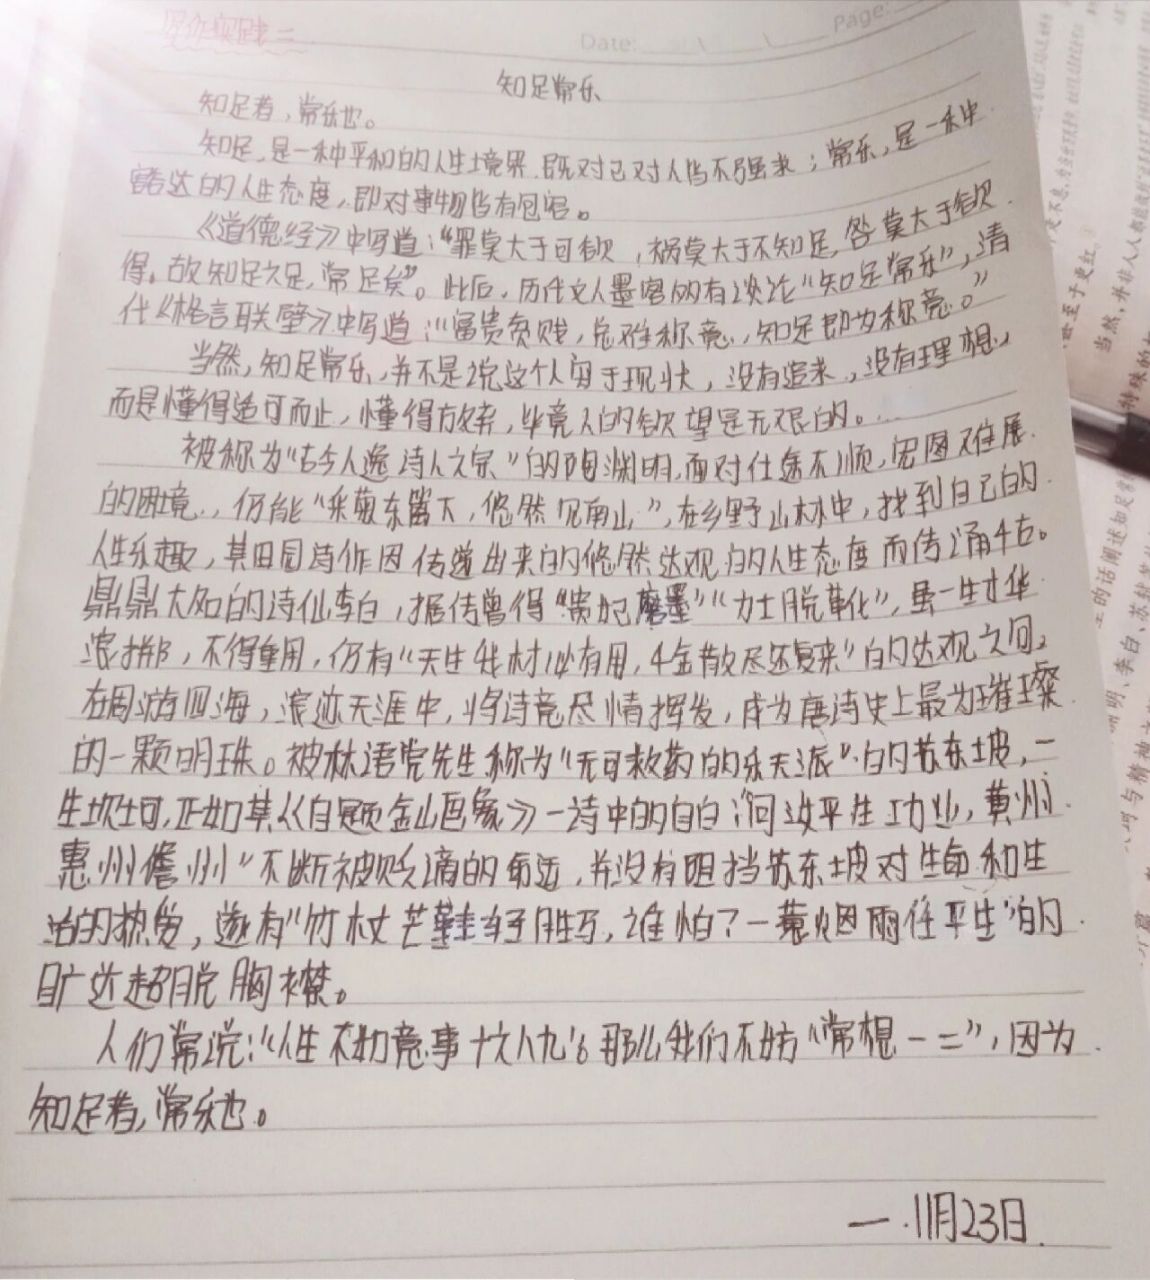 写作实践二
Date:
Page:
知足常乐
知足者，常乐也。
知足，是一种平和的人生境界，既对己对人皆不强求；常乐，是一种
豁达的人生态度，即对事物皆有包容。
《道德经》中写道：“罪莫大于可欲，祸莫大于不知足，咎莫大于欲
得。故知足之足，常足矣”。此后，历代文人墨客纷纷有谈论“知足常乐”，清
代《格言联璧》中写道：“富贵贫贱，总难称意，知足即为称意。”
当然，知足常乐，并不是说这个人安于现状，没有追求，没有理想，
而是懂得适可而止，懂得放弃，毕竟人的欲望是无限的。
被称为“古今人逸诗人之宗”的陶渊明，面对仕途不顺，宏图难展
的困境，仍能“采菊东篱下，悠然见南山”，在乡野山林中，找到自己的
人生乐趣，其田园诗作因传递出来的悠然达观的人生态度而传诵千古。
鼎鼎大名的诗仙李白，据传曾得“贵妃磨墨”“力士脱靴”，虽一生才华
滚拼，不得重用，仍有“天生我材必有用，千金散尽还复来”的达观之间，
在周游四海，浪迹天涯中，将诗意尽情挥发，成为唐诗史上最为璀璨
的一颗明珠。被林语堂先生称为“无可救药的乐天派”的苏东坡，一
生坎坷，正如其《自题金山画像》一诗中的自白：“问汝平生功业，黄州
惠州儋州”不断被贬谪的命运，并没有阻挡苏东坡对生命和生
活的热爱，遂有“竹杖芒鞋轻胜马，谁怕？一蓑烟雨任平生”的
旷达超脱胸襟。
人们常说：“人生不如意事十之八九”，那么我们不妨“常想一二”，因为
知足者，常乐也。
一.11月23日.